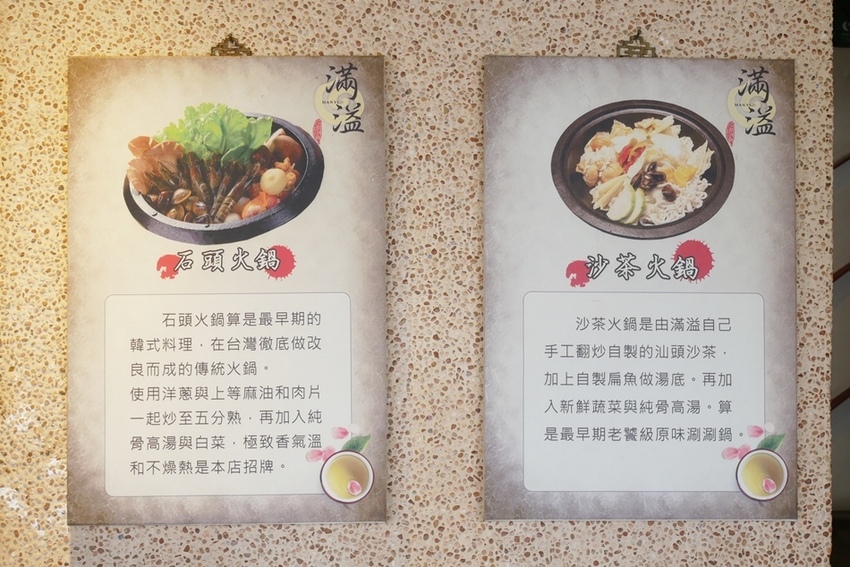 滿溢
石頭火鍋
石頭火鍋算是最早期的
韓式料理，在台灣徹底做改
良而成的傳統火鍋。
使用洋蔥與上等麻油和肉片
一起炒至五分熟，再加入純
骨高湯與白菜，極致香氣溫
和不燥熱是本店招牌。
滿溢
沙茶火鍋
沙茶火鍋是由滿溢自己
手工翻炒自製的汕頭沙茶，
加上自製扁魚做湯底。再加
入新鮮蔬菜與純骨高湯。算
是最早期老饕級原味涮涮鍋。